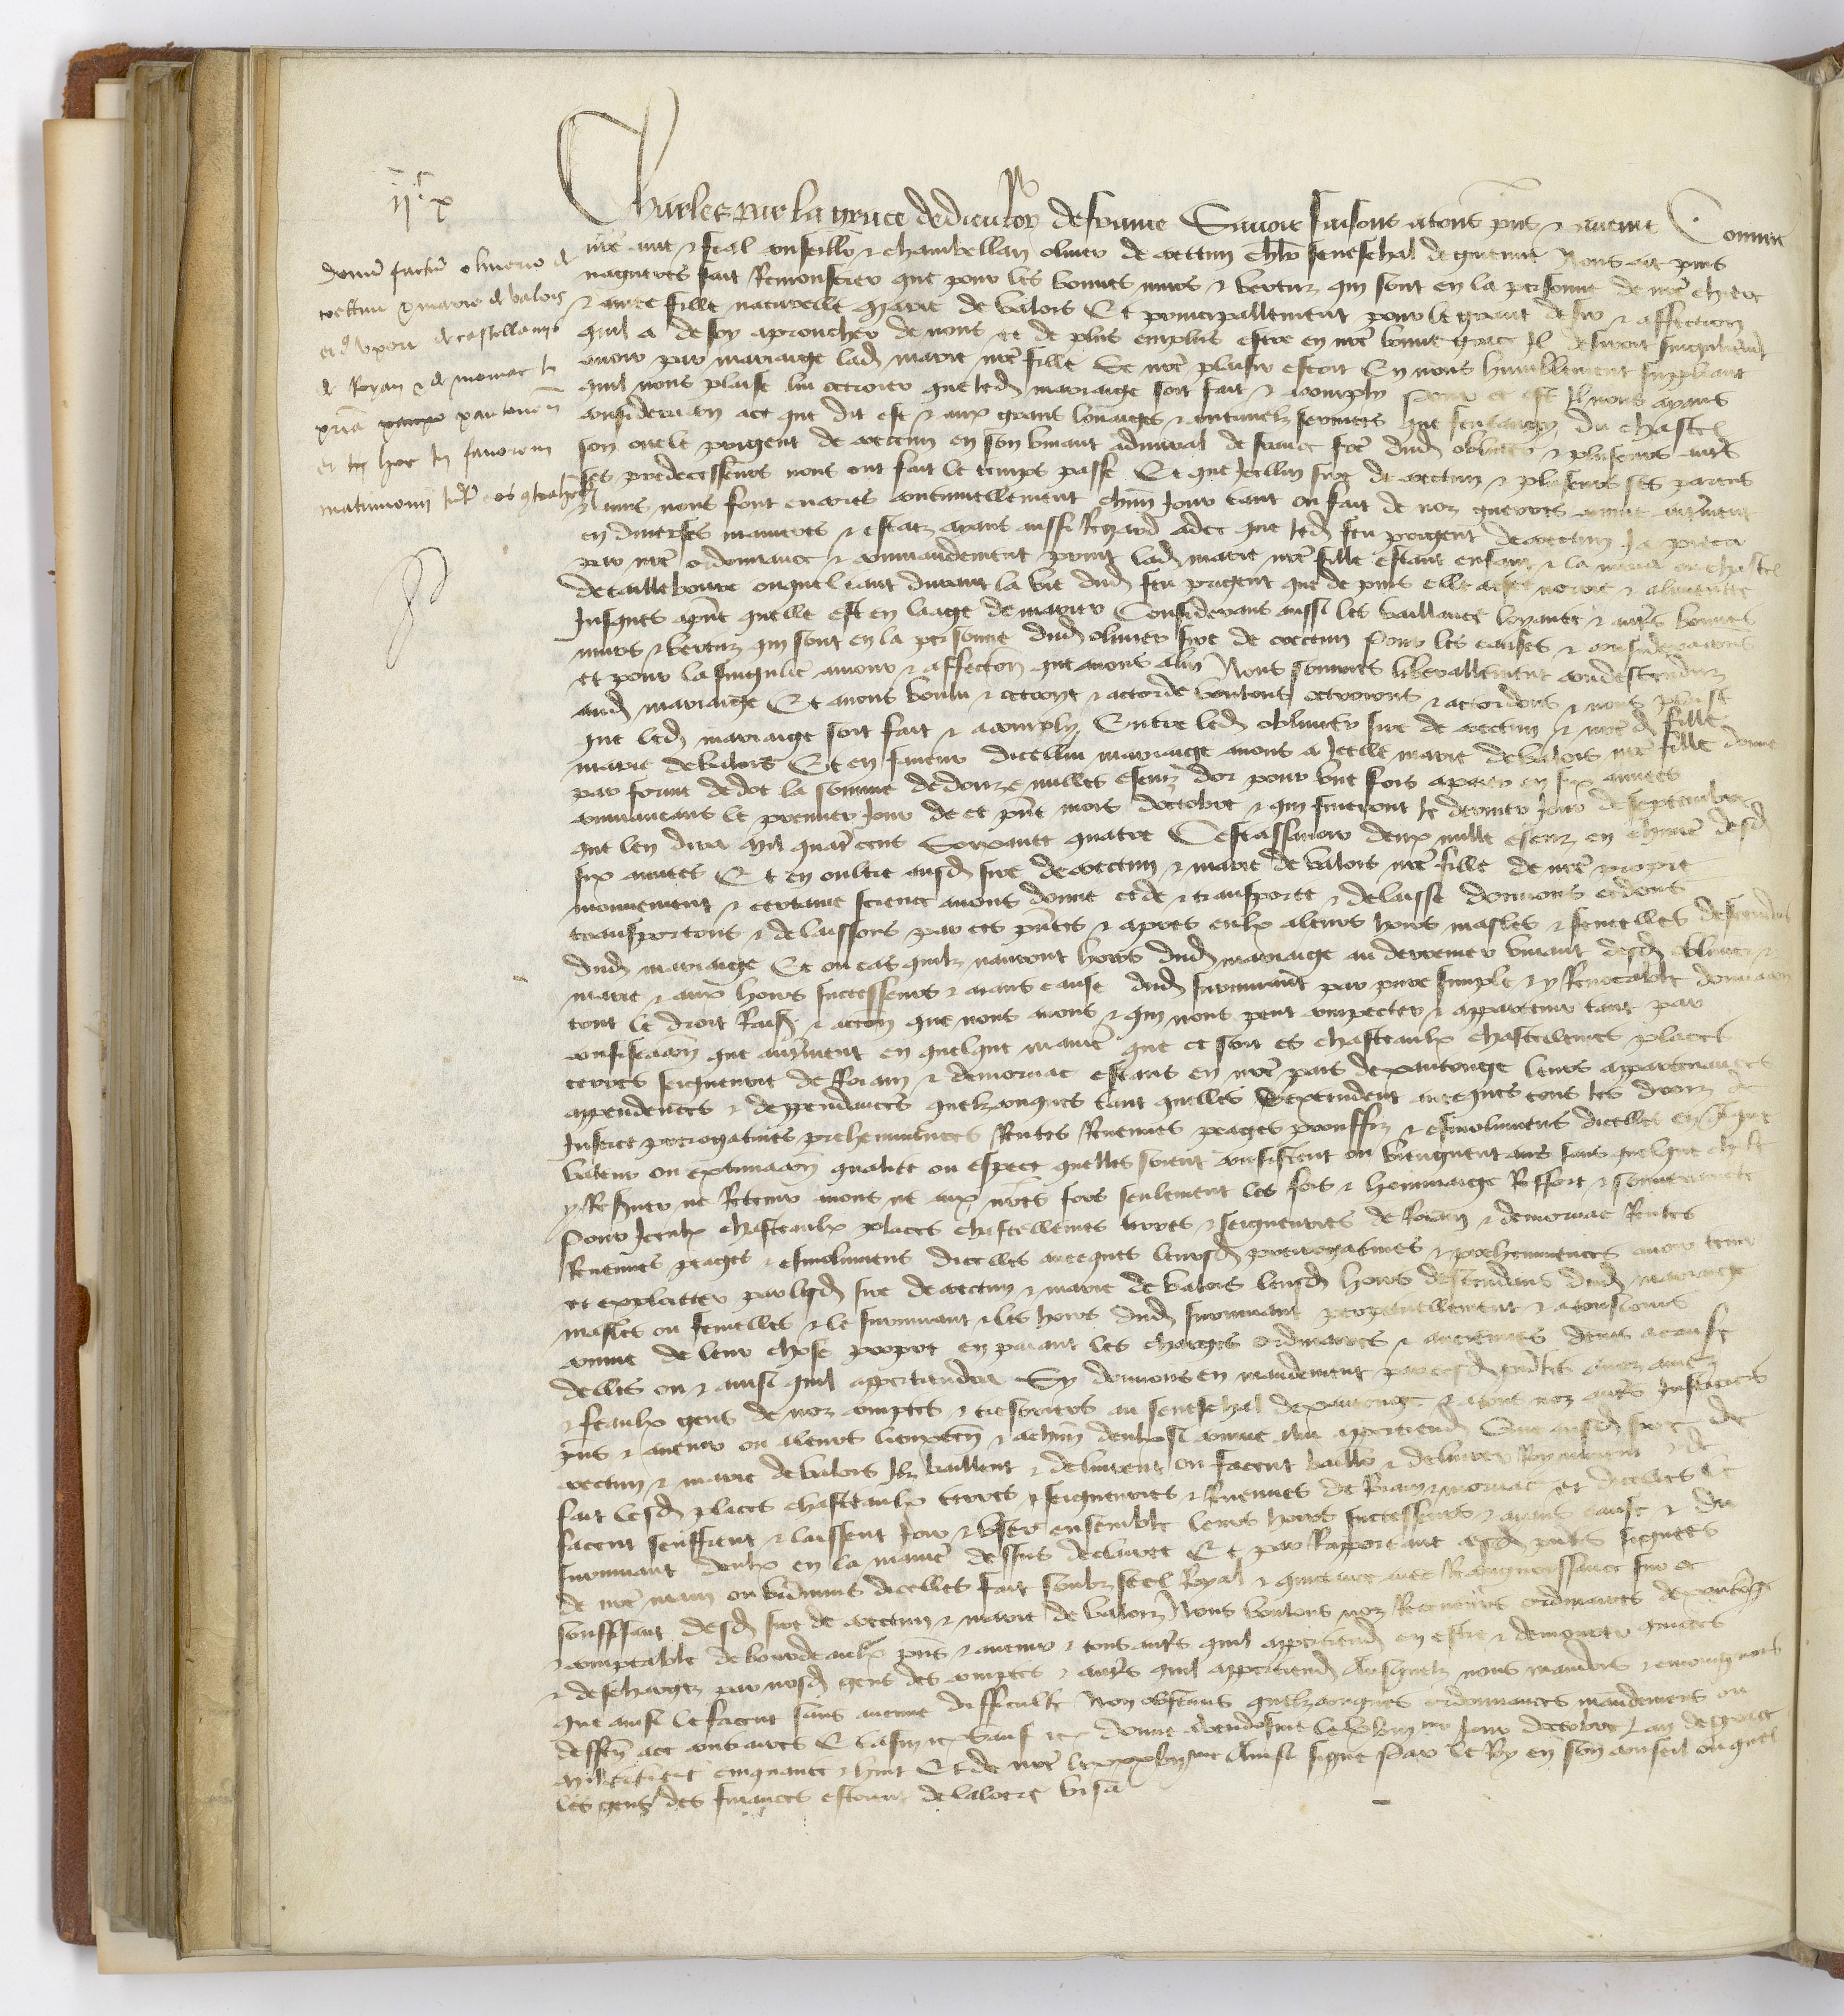 ii.c x
Donum factum olivario de
coettivi et marie de valois
eius uxori de castellaniis
de Royan et de mornac in
pria xantonen
et in hoc in favorem
matrimonii inter eos
Charles par la grace de dieu Roy de france Savoir faisons a tous pns et avenir Comme
nre ame et feal conseiller et chambellan olivier de coettivi chlr seneschal de guienne Nous ait puis
nagueres fait Remonstrer que pour les bonnes meurs et vertuz qui sont en la personne de nre chere
et amee fille naturelle Marie de valois Et principallement pour le grant desir et affection
quil a de soy aproucher de nous et de plus emplus estre en nre bonne grace Il desiroit singulierement
avoir par mariaige lad marie nre fille Se nre plaisir estoit En nous humblement suppliant
quil nous plaise lui octroier que led mariaige soit fait et acomply Pour ce est Il nous ayans
consideracion a ce que dit est et aux grans louaiges et continuelz services que feu tanguy du chastel
son oncle prigent de coettivi en son vivant admiral de france frere dud olivier et plusieurs autres
ses predecesseurs nous ont fait le temps passe Et que Icellui sire de coettivi et plusieurs ses parens
et amis nous font encores continuellement chun Jour tant ou fait de noz guerres comme autrement
en diverses manieres et estatz ayans aussi Regard adce que led feu prigent de coettivi Ja pieca
par nre ordonnance et commandement print lad marie nre fille estant enfant et la mena ou chastel
de taillebourc ouquel tant durant la vie dud feu prigent que depuis elle a este norrie et alimentee
Jusques apnt quelle est en laage de marier Considerans aussi les vaillance loyaute et autres bonnes
meurs et vertuz qui sont en la personne dud olivier sire de coettivi Pour les causes et consideracions
et pour la singuliere amour et affection que avons a lui Nous sommes liberallement condescenduz
aud mariaige Et avons voulu et octroye et accorde voulons octroions et accordons et nous plaist
que led mariaige soit fait et acomply Entre led olivier sire de coettivi et nred fille
marie de valois Et en faveur dicellui mariaige avons a Icelle marie de valois nre fille donne
par forme de dot la somme de douze milles escuz dor pour une fois apaier en six annees
commancans le premier Jour de ce pnt mois doctobre et qui finiront le derrenier Jour de septembre
que len dira Mil quatre cens soixante quatre Cestassavoir deux mille escuz en chune desd
six annees Et en oultre ausd sire de coettivi et marie de valois nre fille de nre propre
mouvement et certaine science avons donne cede et transporte et delaisse donnons cedons
transportons et delaissons par ces pntes et apres eulx a leurs hoirs masles et femelles descendus
dud mariaige Et ou cas quilz nauront hoirs dud mariaige au derrenier vivant desd olivier et
marie et aux hoirs successeurs et aians cause dud survivant par pure simple et yRevocable donnacion
tout le droit Raison et action que nous avons et qui nous peut competter et appartenir tant par
confiscacion que autrement en quelque maniere que ce soit es chasteaulx chastellenies places
terres seigneurie de Roian et de mornac estans en nre pais de xantonge leurs appartenances
appendences et deppendences quelzconques tant quelles sextendent avecques tous les droiz de
Justice prerogatives preheminences Rentes Revenues peages prouffiz et esmolumens dicelles en quelque
valeur ou extimacion qualite ou espece quelles soient consistent ou viengnent ans sans quelque chose
y Reserver ne Retenir a nous ne aux nres fors seulement les foy et hommaige Ressort et souverainete
Pour Iceulx chasteaulx places chastellenies terres et seigneuries de Roian et de mornac Rentes
Revenues peages et esmolumens dicelles avecques leursd prerogatives et preheminences avoir tenir
et explecter par lesd sire de coettivi et marie de valois leursd hoirs descendans dud mariaige
masles ou femelles et le survivant et les hoirs dud survivant perpetuellement et a tousjours
comme de leur chose propre en paiant les charges ordinaires et anciennes deues a cause
delles ou et ainsi quil appartiendra Sy donnons en mandement par cesd pntes a noz amez
et feaulx gens de noz comptes et tresoriers au seneschal de xantonge et a tous noz autres Justiciers
pns et avenir ou a leurs lieuxten et a chun deulx si comme a lui appartiendra Que ausd sire de
coettivi et marie de valois Ilz baillent et delivrent ou facent bailler et delivrer Royaument et de
fait lesd places chasteaulx terres seigneuries et Revenues de Roian et mornac et dicelles le
facent seuffrent et laissent Joir et user ensemble leurs hoirs successeurs et aians cause et du
survivant deulx en la maniere dessus declairee Et par Rapportant cesd pntes signees
de nre main ou vidimus dicelles fait soubz seel Royal et quictance avec Recongnoissance sur ce
souffisant desd sire de coettivi et marie de valois Nous voulons noz Receveurs ordinaires de xantonge
et comptable de bourdeaulx pns et avenir et tous autres quil appartiendra en estre et demourer quictes
et deschargez par nosd gens des comptes et autres quil appartiendra Ausquelz nous mandons et enjoignons
que ainsi le facent sans aucune difficulte Non obstans quelzconques ordonnances mandemens ou
deffenses ace contraires Et afin etc Sauf etc donne a vendosme le xxviii me Jour doctobre lan de grace
Mil cccc cinquante et huit Et de nre Regne le xxxvi me Ainsi signe Par le Roy en son conseil ouquel
les gens des finances estoient delaloere visa